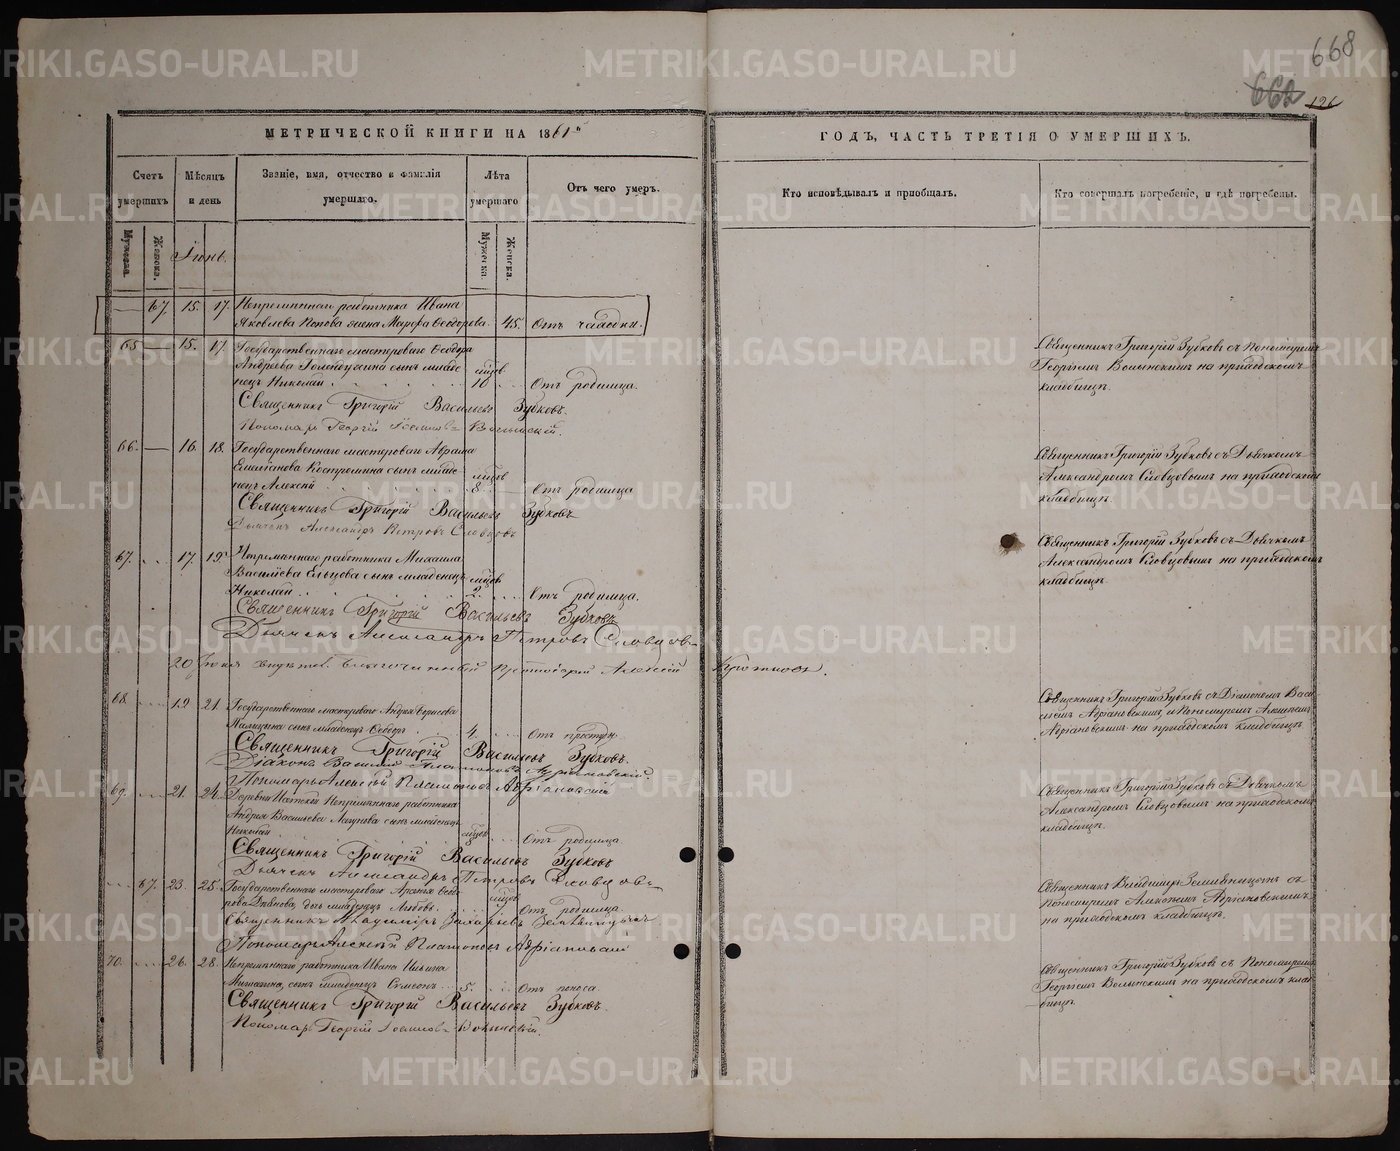 METRIKI.GASO-URAL.RU
668
662
126
МЕТРИЧЕСКОЙ КНИГИ НА 1861й
ГОДЪ, ЧАСТЬ ТРЕТІЯ О УМЕРШИХЪ.
Счетъ умершихъ
Мѣсяцъ и день
Званіе, имя, отчество и фамилія умершаго.
Лѣта умершаго
Отъ чего умеръ.
Кто исповѣдывалъ и пріобщалъ.
Кто совершалъ погребеніе, и гдѣ погребены.
Мужеска.
Женска.
Іюнь.
Мужеска.
Женска.
67. 15. 17. Непремѣннаго работника Ивана
Яковлева Попова жена Марѳа Ѳеодорова. 45. Отъ чахотки.
65 15. 17. Государственнаго мастероваго Ѳеодора
Андреева сынъ младе- мцов
нецъ Николай 10 Отъ родимца.
Священникъ Григорій Зубковъ съ Пономаремъ
Георгіемъ Волынскимъ на приходскомъ
кладбищѣ.
Священникъ Григорій Васильевъ Зубковъ.
Пономарь Георгій Волынскій.
66. 16. 18. Государственнаго мастероваго Абрама
Емельянова Костромина сынъ младе- мцов
нецъ Алексѣй 8 Отъ родимца
Священникъ Григорій Зубковъ съ Дьячкомъ
Александромъ Словцовымъ на приходскомъ
кладбищѣ.
Священникъ Григорій Васильевъ Зубковъ
Дьячекъ Александръ Петровъ Словцовъ
67. 17. 19. Непремѣннаго работника Михаила
Васильева Ельцова сынъ младенецъ мцов
Николай 2. Отъ родимца.
Священникъ Григорій Зубковъ съ Дьячкомъ
Александромъ Словцовымъ на приходскомъ
кладбищѣ.
Священникъ Григорій Васильевъ Зубковъ
Дьячекъ Александръ Петровъ Словцовъ
20 Іюня Благочинный Протоіерей Алексій
68. 19 21. Государственнаго мастероваго Андрея Борисова
сынъ младенецъ Ѳеодоръ 4. Отъ простуды.
Священникъ Григорій Зубковъ съ Діакономъ Васи-
ліемъ Адріановскимъ, и Пономаремъ Алексѣемъ
Адріановскимъ на приходскомъ кладбищѣ.
Священникъ Григорій Васильевъ Зубковъ.
Діаконъ Василій Платоновъ Адріановскій.
Пономарь Алексѣй Платоновъ Адріановскій
69. 21. 24. Деревни Непремѣннаго работника
Андрея Васильева сынъ младенецъ
Николай мцов Отъ родимца
Священникъ Григорій Зубковъ съ Дьячкомъ
Александромъ Словцовымъ на приходскомъ
кладбищѣ.
Священникъ Григорій Васильевъ Зубковъ
Дьячекъ Александръ Петровъ Словцовъ
67. 23. 25. Государственнаго мастероваго Ѳеодо-
рова дочь младенецъ Любовь. Отъ родимца
Священникъ Владиміръ Земляницынъ съ
Пономаремъ Алексѣемъ Адріановскимъ
на приходскомъ кладбищѣ.
Священникъ Владиміръ Захаріевъ Земляницынъ
Пономарь Алексѣй Платоновъ Адріановскій
70. 26. 28. Непремѣннаго работника Ивана Ильина
сынъ младенецъ Симеонъ 5. Отъ поноса
Священникъ Григорій Зубковъ съ Пономаремъ
Георгіемъ Волынскимъ на приходскомъ клад-
бищѣ.
Священникъ Григорій Васильевъ Зубковъ.
Пономарь Георгій Волынскій.